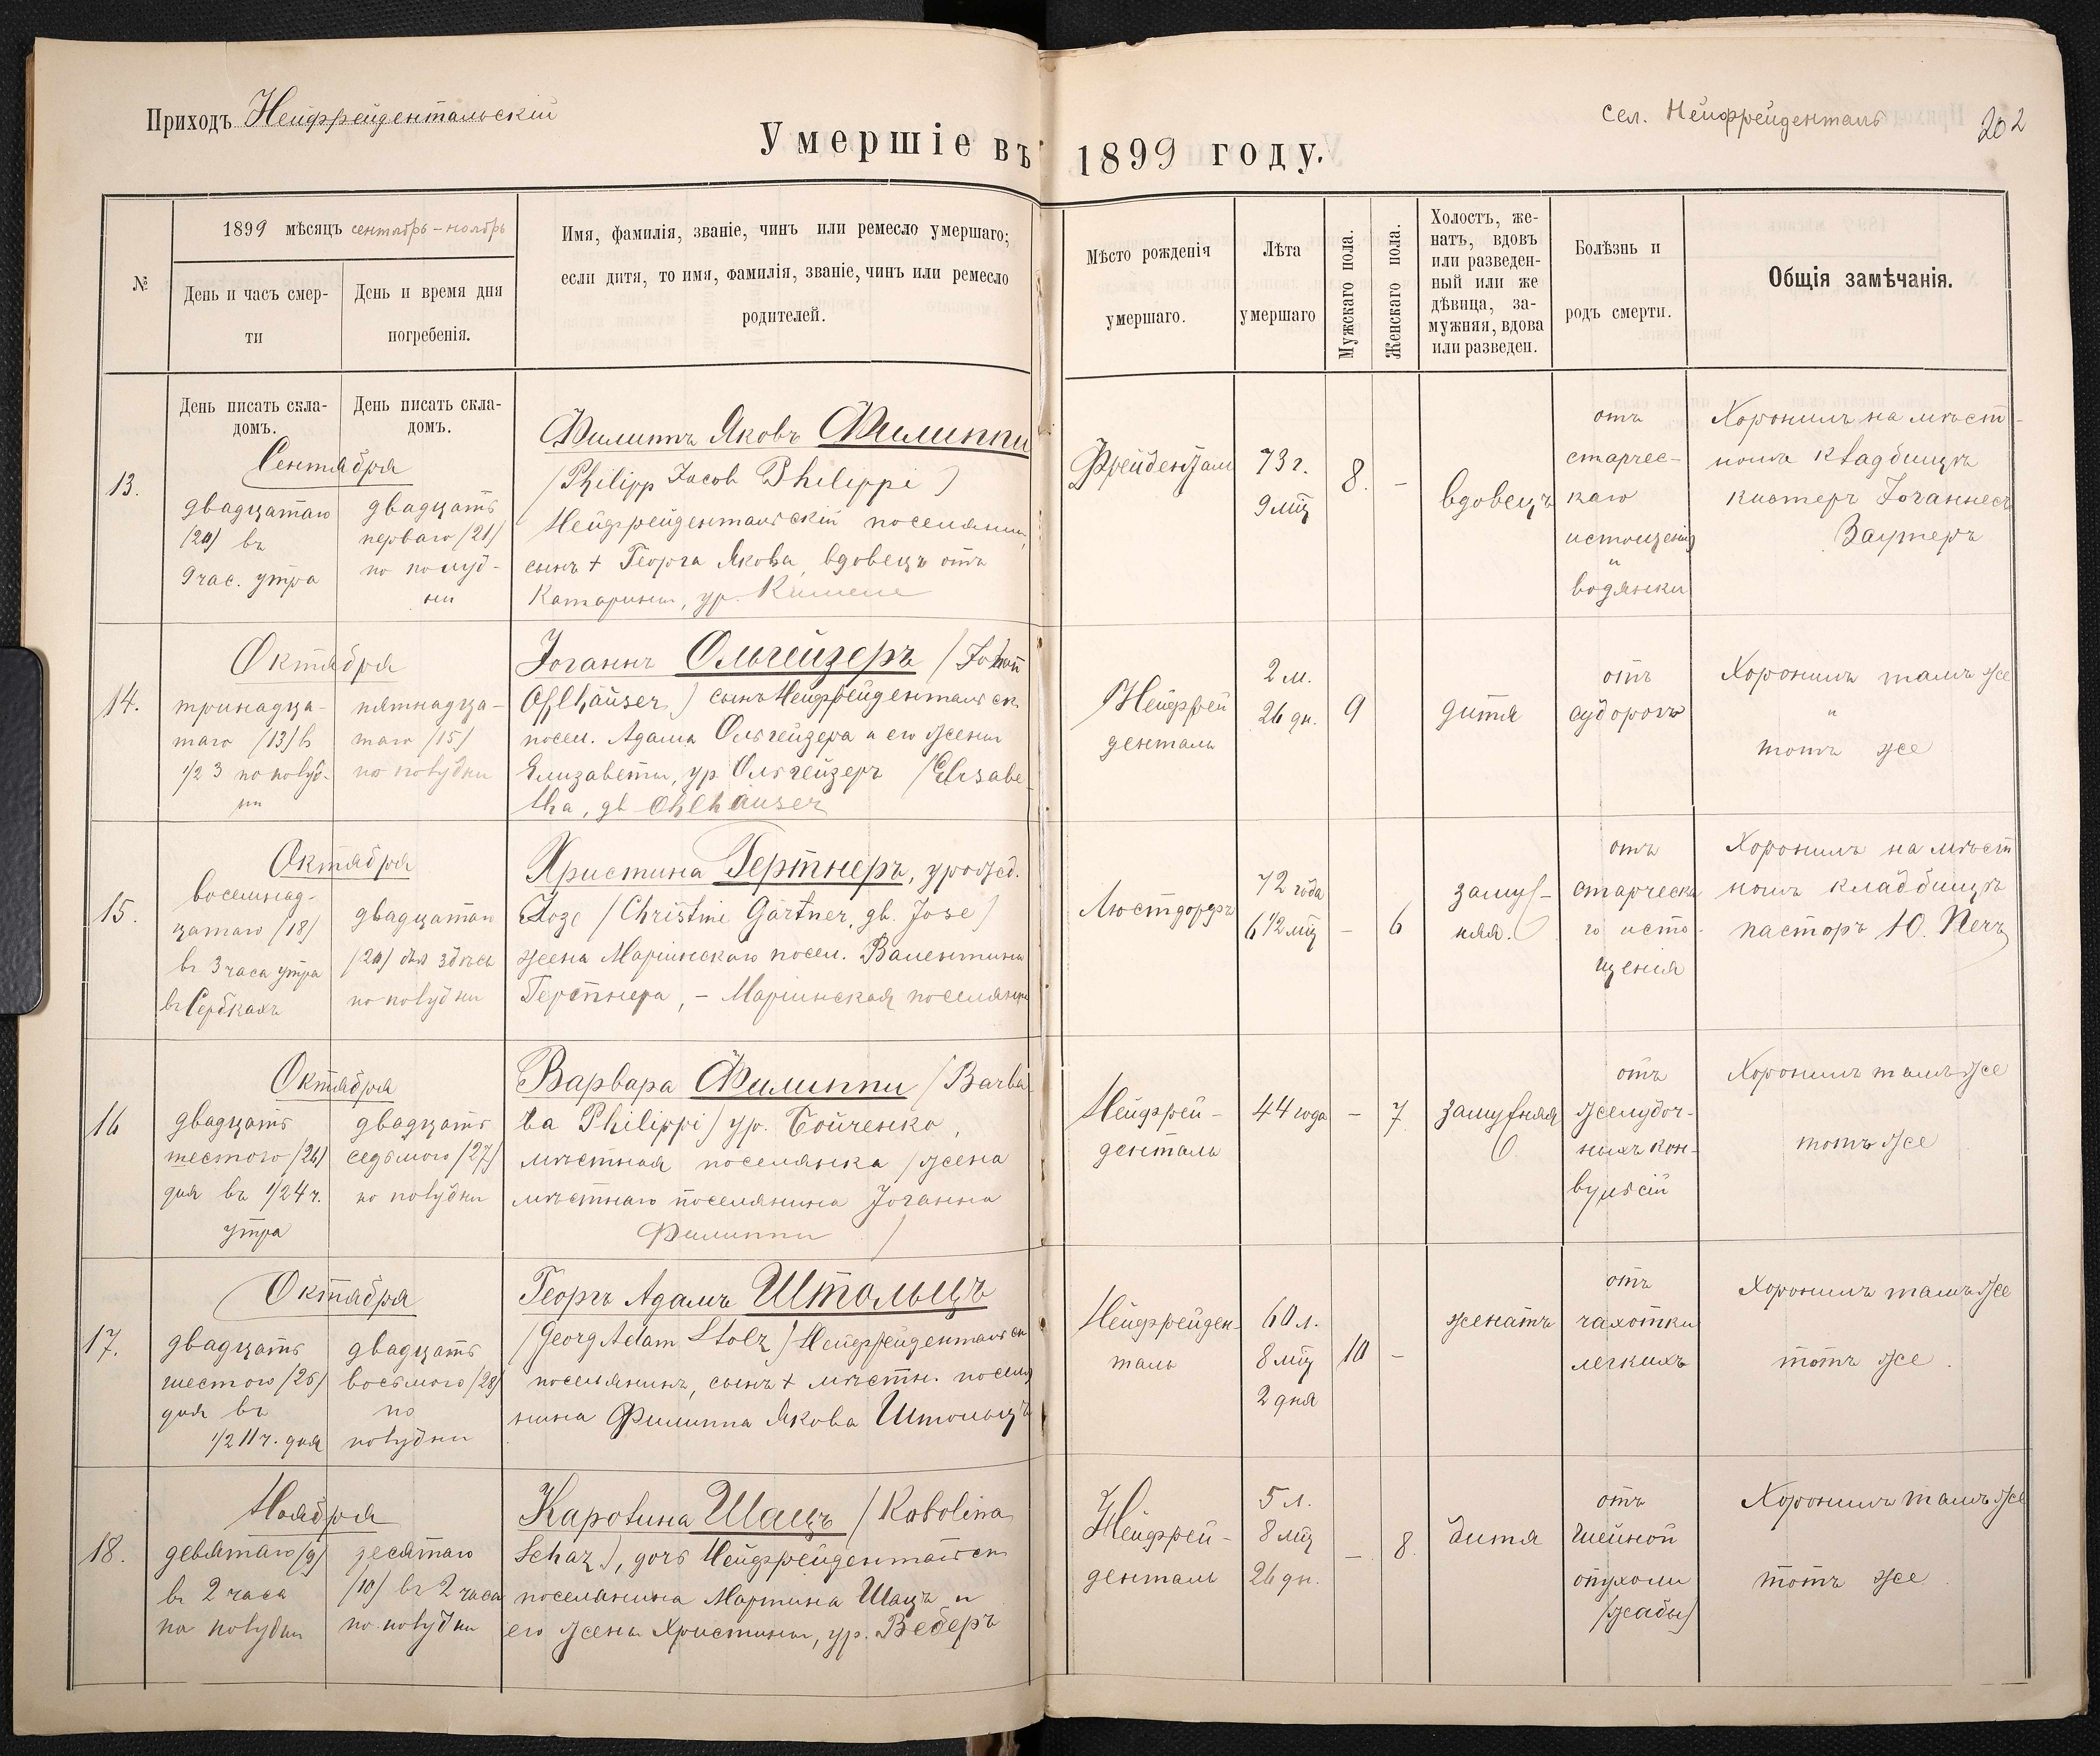 Приходъ Нейфрейдентальскій
сел. Нейфрейденталь
202
Умершіе въ 1899 году.
№
1899 мѣсяцъ сентябрь – ноябрь
День и часъ смер-
ти
День и время дня
погребенія.
Имя, фамилія, званіе, чинъ или ремесло умершаго;
если дитя, то имя, фамилія, званіе, чинъ или ремесло
родителей.
Мѣсто рожденія
умершаго.
Лѣта
умершаго
Мужскаго пола.
Женскаго пола.
Холостъ, же-
натъ, вдовъ
или разведен-
ный или же
дѣвица, за-
мужняя, вдова
или разведен.
Болѣзнь и
родъ смерти.
Общія замѣчанія.
День писать скла-
домъ.
День писать скла-
домъ.
13.
Сентября
двадцатаго
/20/ въ
9 час. утра
двадцать
перваго /21/
по полуд-
ни
Филиппъ Яковъ Филиппи
/Philipp Jacob Philippi/
Нейфрейдентальскій поселянин,
сынъ + Георга Якова, вдовецъ отъ
Катарины, ур.
Фрейденталь
73 г.
9 мц
8.
–
вдовецъ
отъ
старчес-
каго
истощенія
и
водянки
Хоронилъ на мѣст-
номъ кладбищѣ
кистеръ Іоганнесъ
Заутеръ
14.
Октября
тринадца-
таго /13/ в
1/2 3 по полуд-
ни
пятнадца-
таго /15/
по полудни
Іоганнъ Ольгейзеръ /Johann
Ohlhäuser/ сынъ Нейфрейдентальск.
посел. Адама Ольгейзера и его жены
Елизаветы, ур. Ольгейзеръ /Elisabe-
tha, gb Ohlhäuser
Нейфрей
денталь
2 м.
26 дн.
9
дитя
отъ
судорогъ
Хоронилъ тамъ же
"
тотъ же
15.
Октября
восемнад-
цатаго /18/
въ 3 часа утра
въ Сербкахъ
двадцатаго
/20/ дня здѣсь
по полудни
Христина Гертнеръ, урожд.
Іозе /Christine Gärtner, gb. Jose/
жена Маріинскаго посел. Валентина
Гертнера, – Маріинская поселянка
Люстдорфъ
72 года
6 1/2 мц
–
6
замуж-
няя.
отъ
старческа
го исто-
щенія
Хоронилъ на мѣст
номъ кладбищѣ
пасторъ Ю. Печъ
16
Октября
двадцать
шестого /26/
дня въ 1/2 4 ч.
утра
двадцать
седьмого /27/
по полудни
Варвара Филиппи /Barba-
ra Philippi/ ур. Бойченко,
мѣстная поселянка /жена
мѣстнаго поселянина Іоганна
Филиппи /
Нейфрей-
денталь
44 года
–
7
замужняя
отъ
желудоч-
ныхъ кон-
вульсій
Хоронилъ тамъ же
тотъ же
17.
Октября
двадцать
шестого /26/
дня въ
1/2 11 ч. дня
двадцать
восьмого /28/
по
полудни
Георгъ Адамъ Штольцъ
/Georg Adam Stolz/ Нейфрейдентальск
поселянинъ, сынъ + мѣстн. поселя
нина Филиппа Якова Штольцъ
Нейфрейден-
таль
60 л.
8 мц
2 дня
10
–
женатъ
отъ
чахотки
легкихъ
Хоронилъ тамъ же
тотъ же.
18.
Ноября
девятаго /9/
въ 2 часа
по полудни
десятаго
/10/ въ 2 часа
по полудни
Каролина Шацъ /Karolina
Schaz/, дочь Нейфрейдентальск
поселянина Мартина Шацъ и
его жены Христины, ур. Веберъ
Нейфрей-
денталь
5 л.
8 мц
26 дн.
–
8.
дитя
отъ
шейной
опухоли
/жабы/
Хоронилъ тамъ же
тотъ же